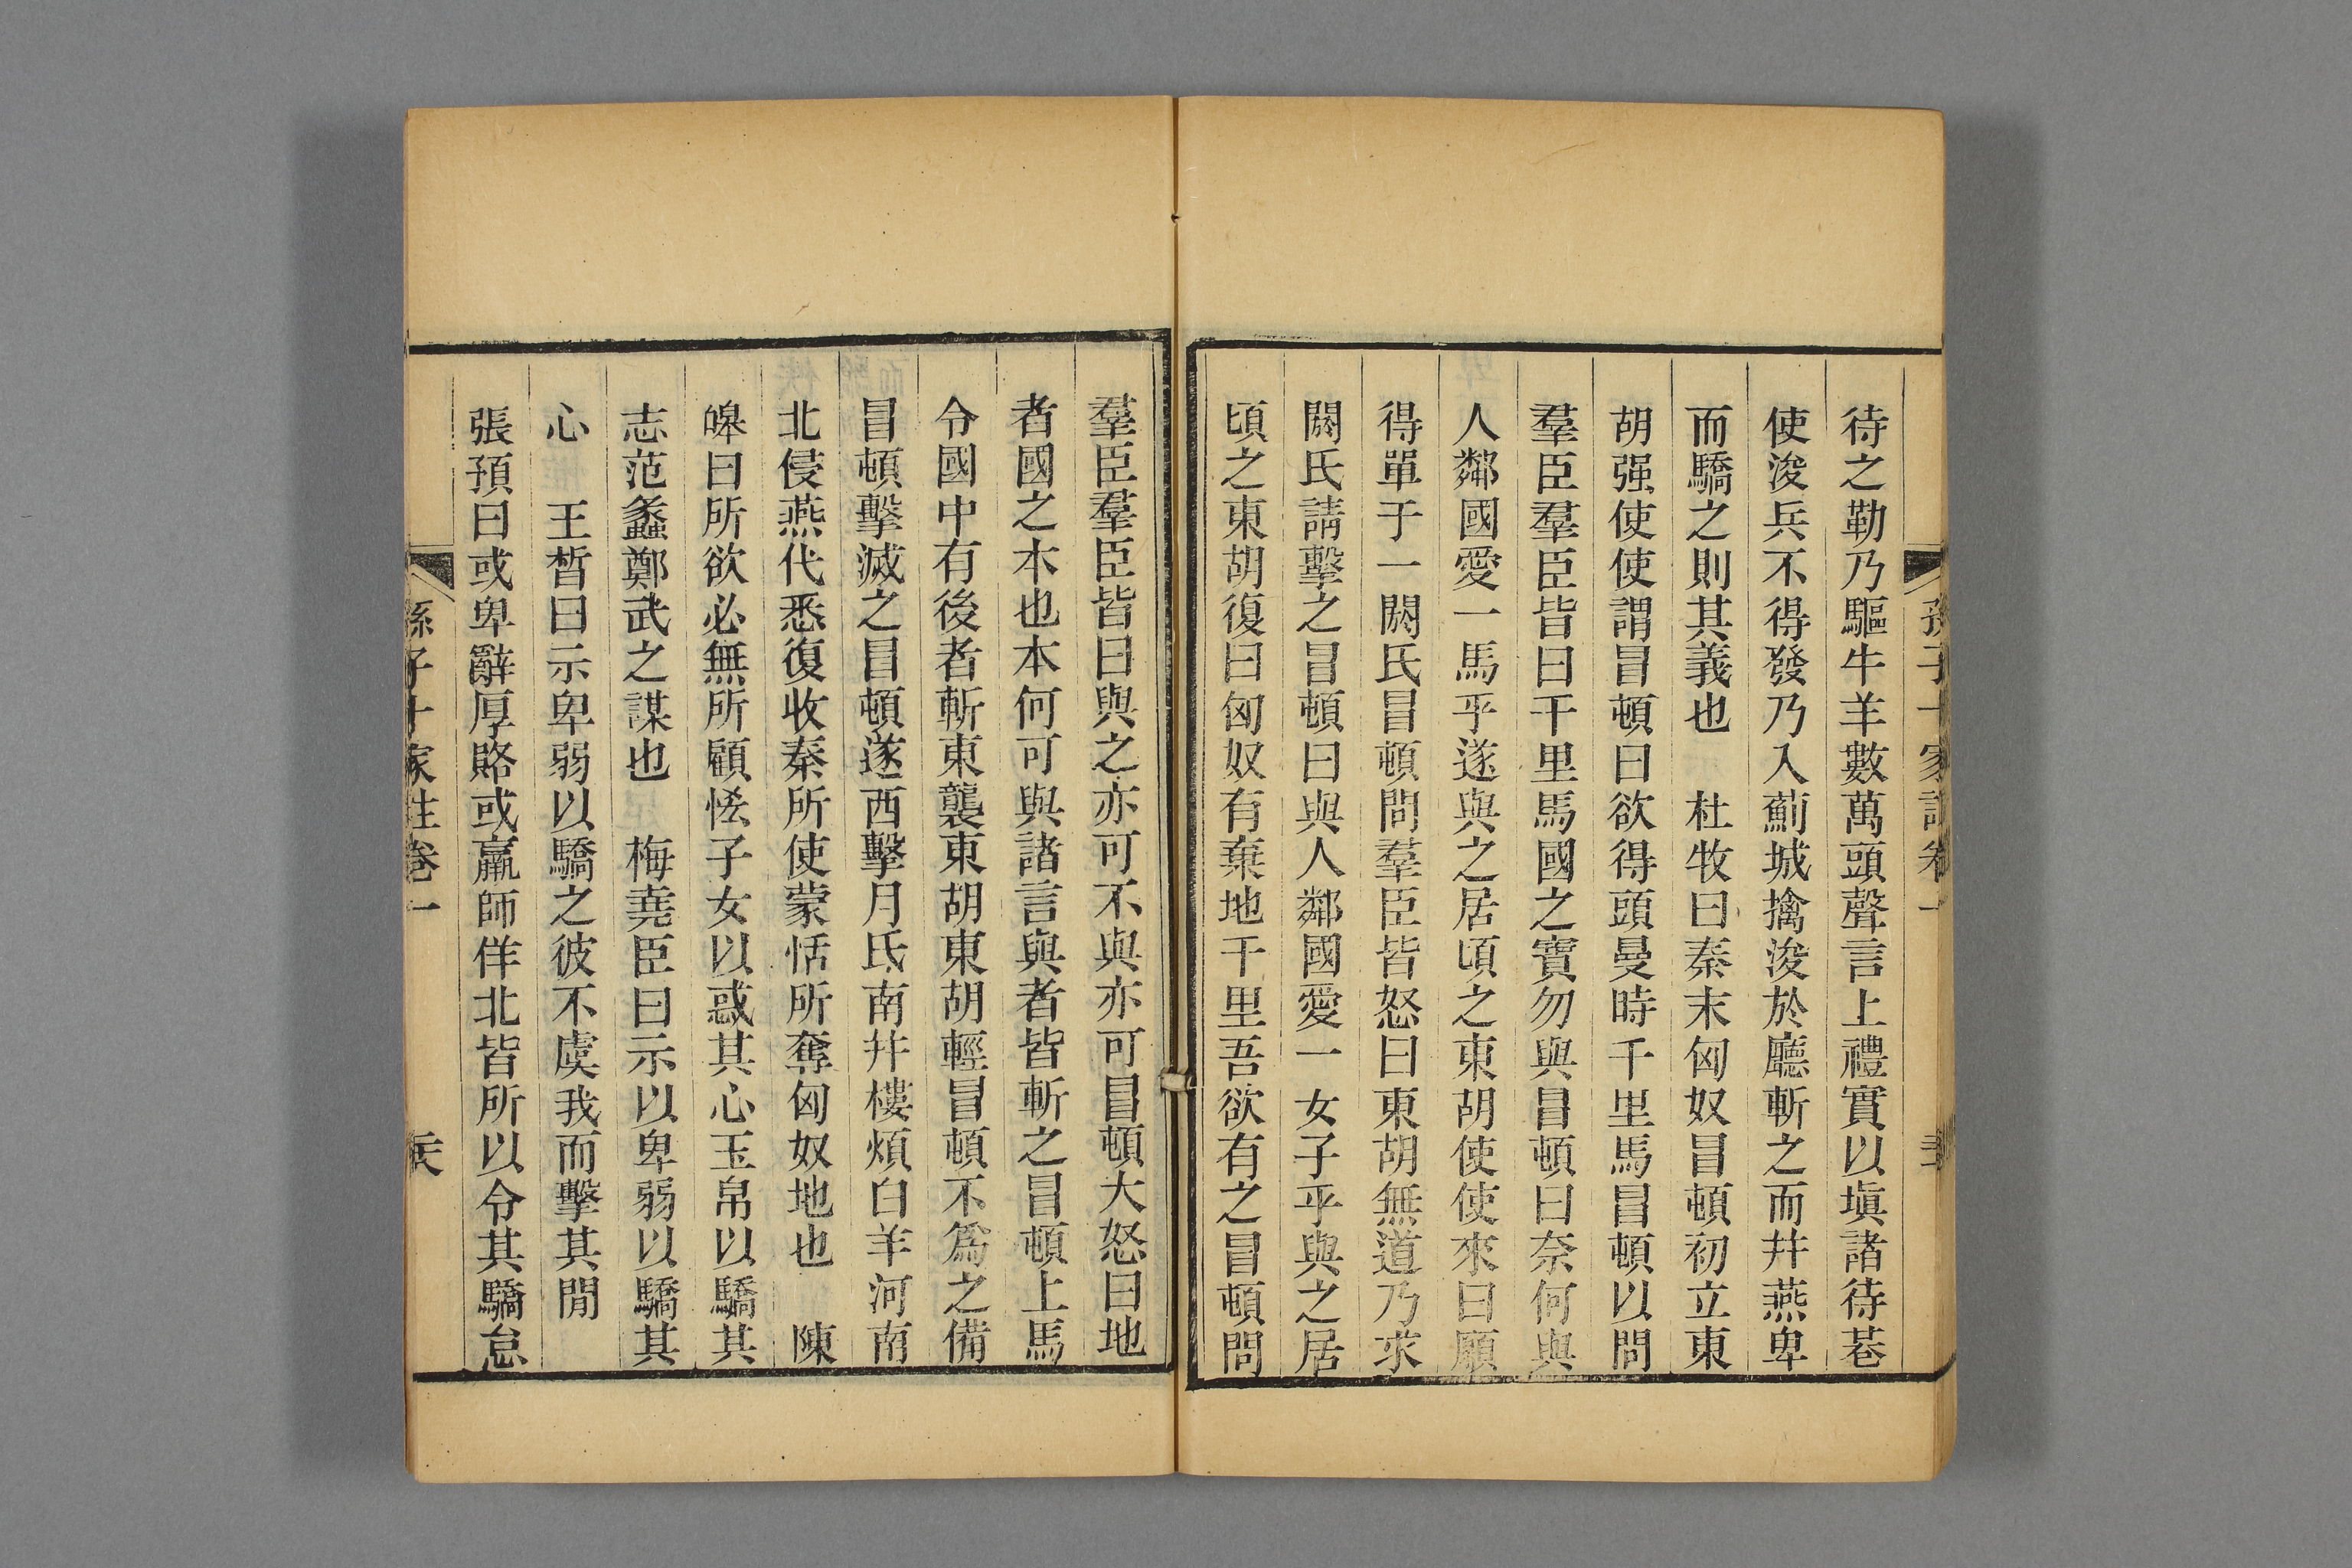 待之勒乃驅牛羊數萬頭聲言上禮實以塡諸待巷
使浚兵不得發乃入薊城擒浚於廳斬之而幷燕卑
而驕之則其義也　杜牧曰秦末匈奴冒頓初立東
胡强使使謂冒頓曰欲得頭曼時千里馬冒頓以問
羣臣羣臣皆曰千里馬國之寶勿與冒頓曰奈何與
人鄰國愛一馬乎遂與之居頃之東胡使使來曰願
得單于一閼氏冒頓問羣臣皆怒曰東胡無道乃求
閼氏請擊之冒頓曰與人鄰國愛一女子乎與之居
頃之東胡復曰匈奴有棄地千里吾欲有之冒頓問
羣臣羣臣皆曰與之亦可不與亦可冒頓大怒曰地
者國之本也本何可與諸言與者皆斬之冒頓上馬
令國中有後者斬東襲東胡東胡輕冒頓不爲之備
冒頓擊滅之冒頓遂西擊月氏南幷樓煩白羊河南
北侵燕代悉復收秦所使蒙恬所奪匈奴地也　陳
皡曰所欲必無所顧恡子女以惑其心玉帛以驕其
志范蠡鄭武之謀也　梅堯臣曰示以卑弱以驕其
心　王晳曰示卑弱以驕之彼不虞我而擊其閒
張預曰或卑辭厚賂或羸師佯北皆所以令其驕怠
孫子十家註卷一